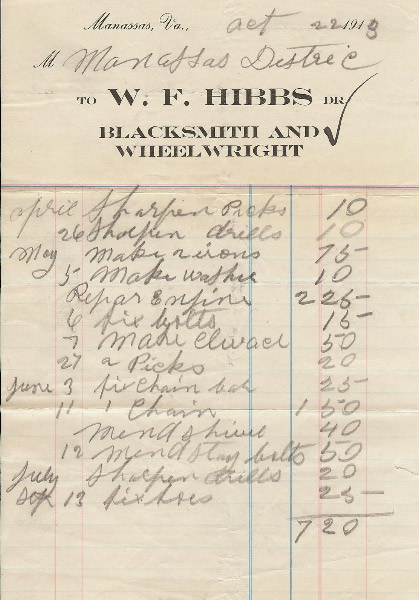 Manassas, Va., Oct 22 1913
M Manassas Distric
TO W. F. HIBBS DR
BLACKSMITH AND
WHEELWRIGHT
April Sharpen Picks 10
26 Sharpen drills 10
May Make 2 irons 75
5 Make washer 10
Repar Engine 2 25
6 fix bolts 15
7 Make 50
27 2 Picks 20
June 3 fix Chain bar 25
11 1 Chain 1 50
Mend 40
12 Mend Stay bolts 50
July Sharpen drills 20
Sep 13 fix hoes 25
7 20